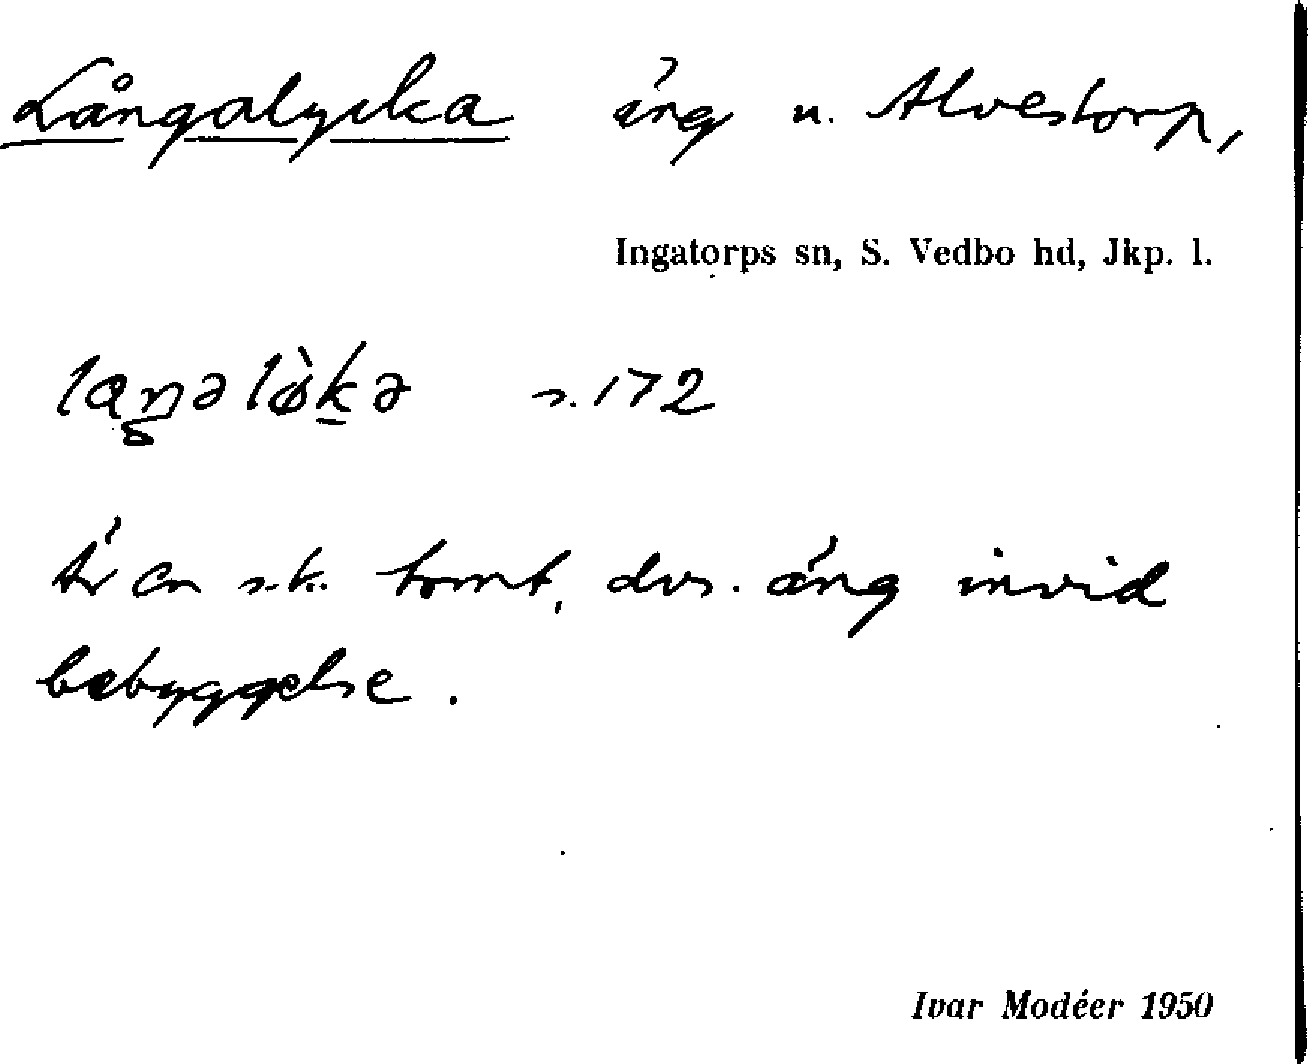 Långalycka äng u. Alvestorp,
Ingatorps sn, S. Vedbo hd, Jkp. l.
laŋəlø̀kə s. 172
Är en s.k. tomt, dvs. äng invid
bebyggelse.
Ivar Modéer 1950